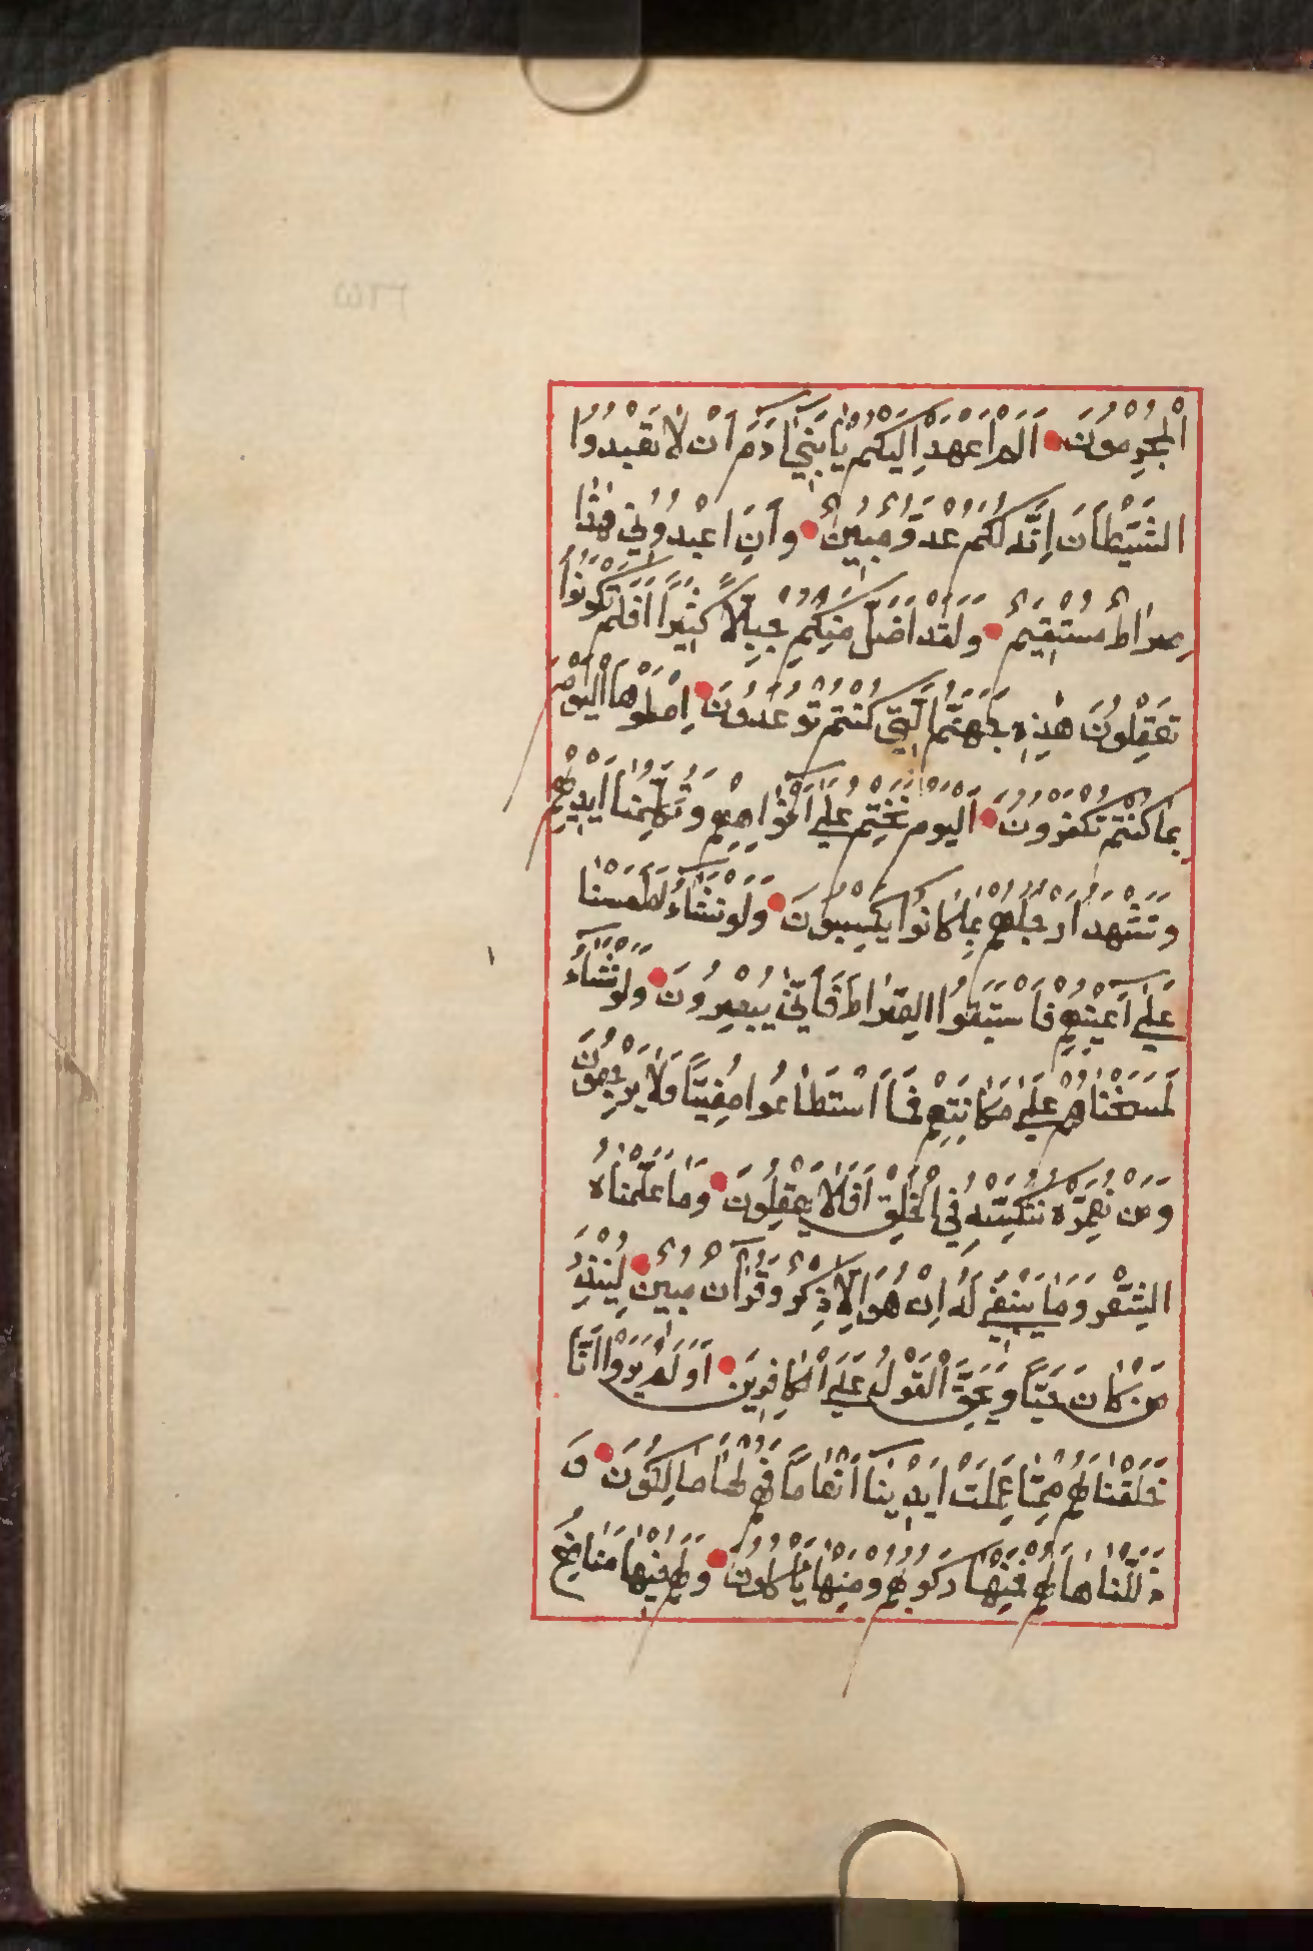 الْمُجْرِمُونَ اَلَمْ اَعْهَدْ اِلَيْكُمْ يَا بَنِي اٰدَمَ اَنْ لَا تَعْبُدُوا
الشَّيْطَانَ اِنَّهُ لَكُمْ عَدُوٌّ مُبِينٌ وَاَنِ اعْبُدُونِي هٰذَا
صِرَاطٌ مُسْتَقِيمٌ وَلَقَدْ اَضَلَّ مِنْكُمْ جِبِلًّا كَثِيرًا اَفَلَمْ تَكُونُوا
تَعْقِلُونَ هٰذِهِ جَهَنَّمُ الَّتِي كُنْتُمْ تُوعَدُونَ اِصْلَوْهَا الْيَوْمَ
بِمَا كُنْتُمْ تَكْفُرُونَ اَلْيَوْمَ نَخْتِمُ عَلٰى اَفْوَاهِهِمْ وَتُكَلِّمُنَا اَيْدِيهِمْ
وَتَشْهَدُ اَرْجُلُهُمْ بِمَا كَانُوا يَكْسِبُونَ وَلَوْ نَشَاءُ لَطَمَسْنَا
عَلٰى اَعْيُنِهِمْ فَاسْتَبَقُوا الصِّرَاطَ فَاَنّٰى يُبْصِرُونَ وَلَوْ نَشَاءُ
لَمَسَخْنَاهُمْ عَلٰى مَكَانَتِهِمْ فَمَا اسْتَطَاعُوا مُضِيًّا وَلَا يَرْجِعُونَ
وَمَنْ نُعَمِّرْهُ نُنَكِّسْهُ فِي الْخَلْقِ اَفَلَا يَعْقِلُونَ وَمَا عَلَّمْنَاهُ
الشِّعْرَ وَمَا يَنْبَغِي لَهُ اِنْ هُوَ اِلَّا ذِكْرٌ وَقُرْاٰنٌ مُبِينٌ لِيُنْذِرَ
مَنْ كَانَ حَيًّا وَيَحِقَّ الْقَوْلُ عَلَى الْكَافِرِينَ اَوَلَمْ يَرَوْا اَنَّا
خَلَقْنَا لَهُمْ مِمَّا عَمِلَتْ اَيْدِينَا اَنْعَامًا فَهُمْ لَهَا مَالِكُونَ وَ
ذَلَّلْنَاهَا لَهُمْ فَمِنْهَا رَكُوبُهُمْ وَمِنْهَا يَأْكُلُونَ وَلَهُمْ فِيهَا مَنَافِعُ